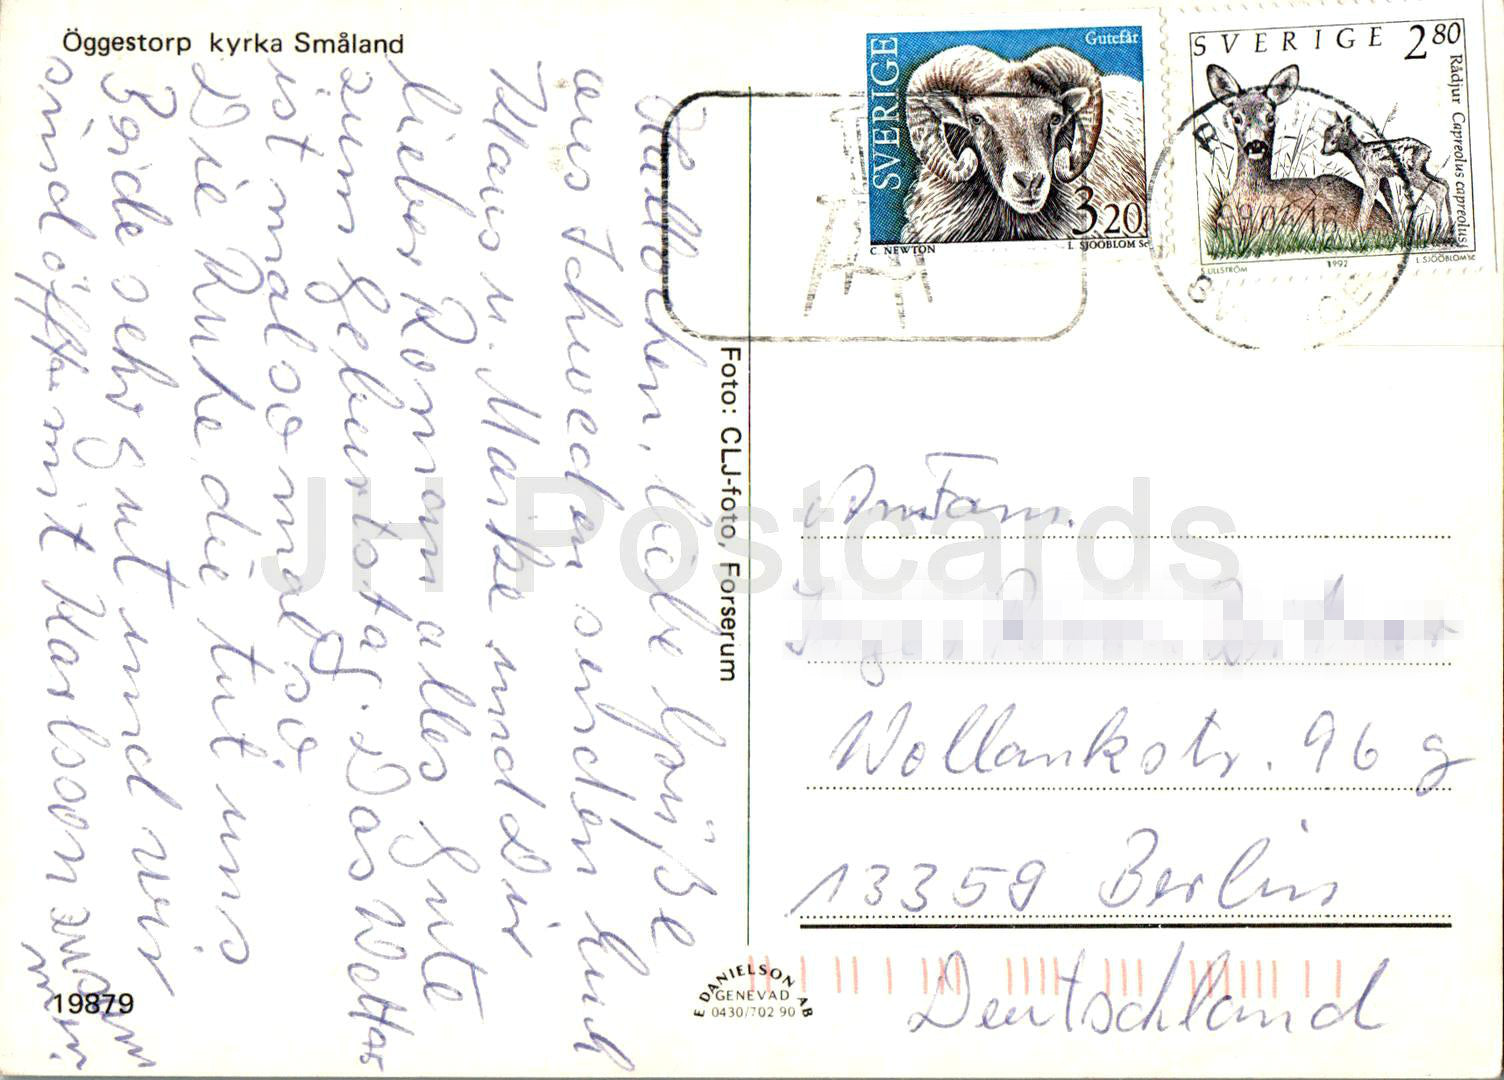 Öggestorp kyrka Småland
Hallöchen, liebe Grüße
aus Schweden senden Euch
Klaus u. Maike und Dir
lieber Roman alles Gute
zum Geburtstag. Das Wetter
ist mal so mal so
Die Ruhe, die tut uns
Beide sehr gut und wir
sind öfter mit Karlsson zusam
men.
19879
Foto: CLJ-foto, Forserum
E DANIELSON AB
GENEVAD
0430/702 90
SVERIGE
Gutefår
3,20
C. NEWTON
L. SJÖÖBLOM Sc
SVERIGE 2 80
Rådjur Capreolus capreolus
S. ULLSTRÖM
1992
L. SJÖÖBLOM sc
An Fam.
Wollankstr. 96 g
13359 Berlin
Deutschland
JH Postcards